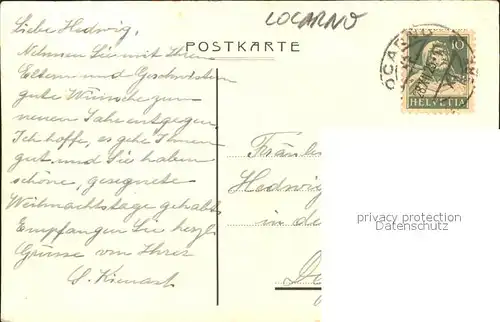 LOCARNO
POSTKARTE
Liebe Hedwig,
Nehmen Sie mit Ihren
Eltern und Geschwistern
gute Wünsche zum
neuen Jahre entgegen.
Ich hoffe, es gehe Ihnen
gut und Sie haben
schöne, gesegnete
Weihnachtstage gehabt.
Empfangen Sie herzl.
Grüsse von Ihrer
S. Kienast
10
HELVETIA
Fräulein
Hedwig
in de
privacy protection
Datenschutz